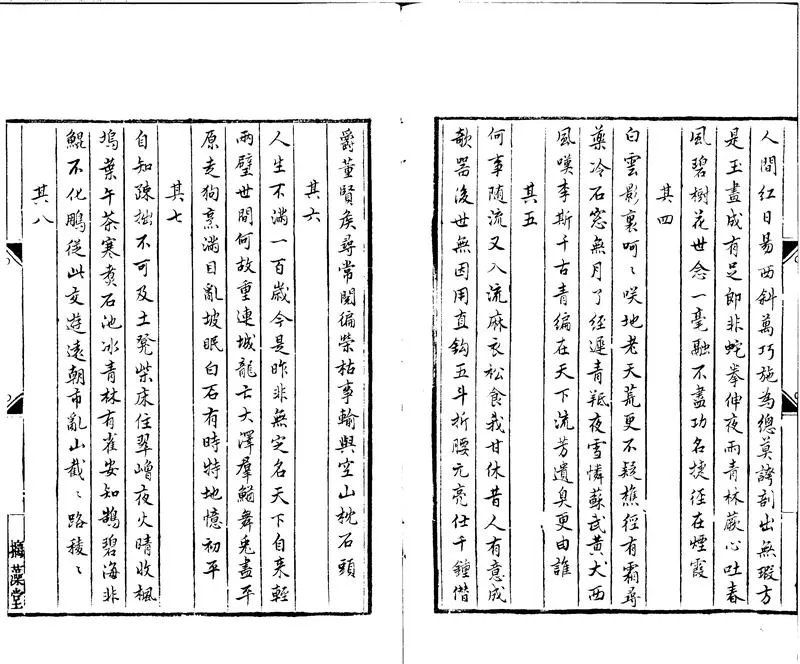 人間紅日易西斜萬巧施為總莫誇剖出無瑕方
是玉畫成有足即非蛇拳伸夜雨青林蕨心吐春
風碧樹花世念一毫融不盡功名捷徑在煙霞
其四
白雲影裏呵〻咲地老天荒更不疑樵徑有霜尋
藥冷石窓無月了經遲青羝夜雪憐蘇武黃犬西
風嘆李斯千古青編在天下流芳遺臭更由誰
其五
何事随流又入流麻衣松食我甘休昔人有意成
欹器後世無因用直鈎五斗折腰元亮仕千鍾僭
爵董賢侯尋常閱徧榮枯事輸與空山枕石頭
其六
人生不滿一百歲今是昨非無定名天下自来輕
兩璧世間何故重連城龍亡大澤羣鰌舞兎盡平
原走狗烹滿目亂坡眠白石有時特地憶初平
其七
自知疎拙不可及土凳柴床住翠嶒夜火晴收楓
塢葉午茶寒煮石池冰青林有雀安知鵠碧海非
鯤不化鵬從此交遊遠朝市亂山截〻路稜〻
其八
摛藻堂